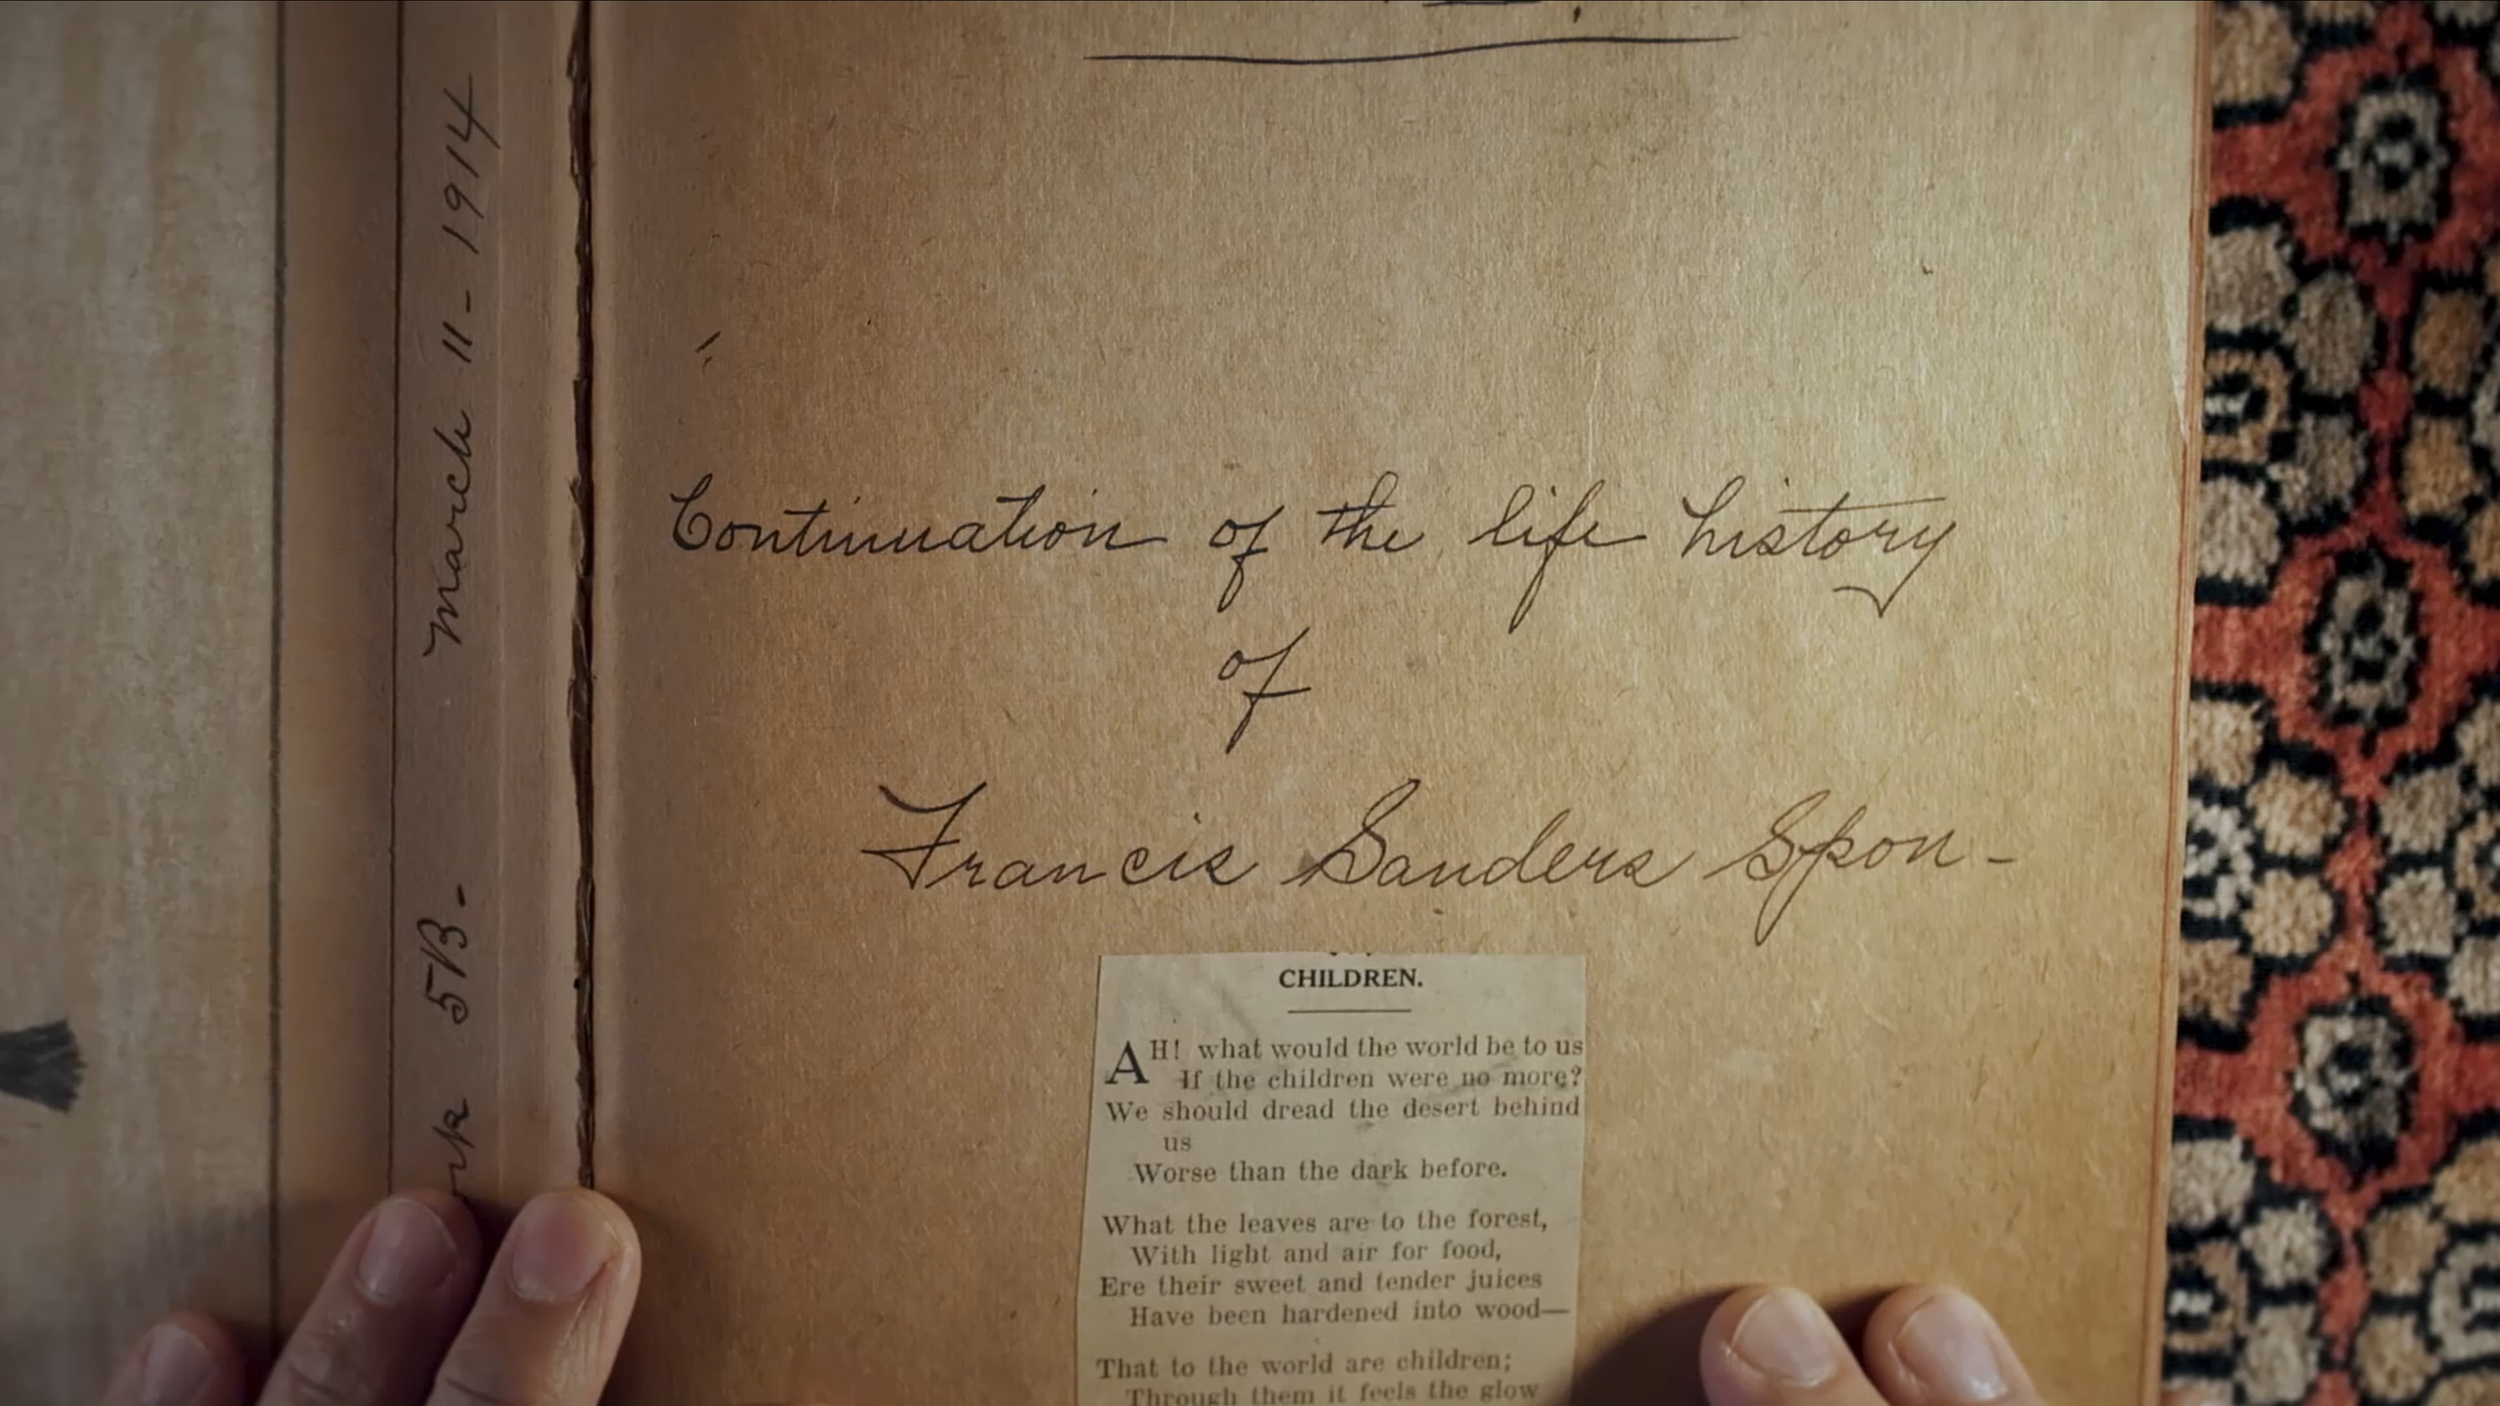 March 11 - 1914
5B -
Continuation of the life history
of
Francis Sanders Spon -
CHILDREN.
AH! what would the world be to us
If the children were no more?
We should dread the desert behind
us
Worse than the dark before.
What the leaves are to the forest,
With light and air for food,
Ere their sweet and tender juices
Have been hardened into wood—
That to the world are children;
Through them it feels the glow